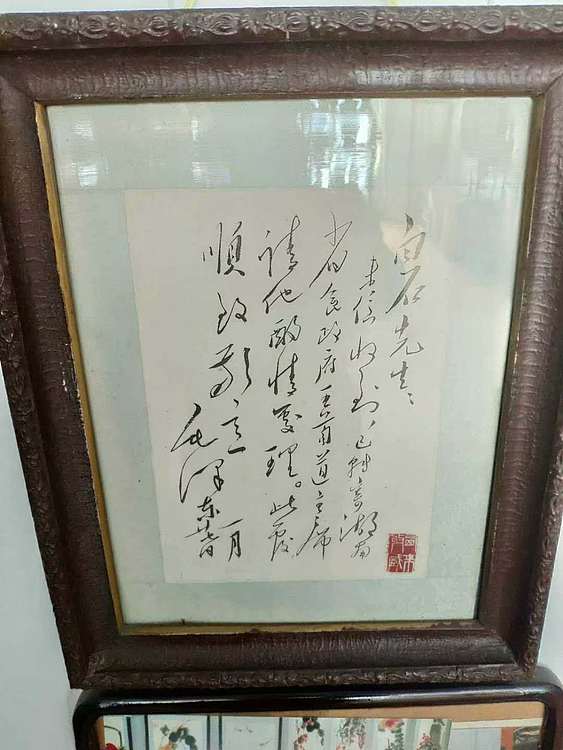 白石先生：
来信收到，已转寄湖南
省政府王首道主席
请他酌情处理。此复
顺致敬意
毛泽东